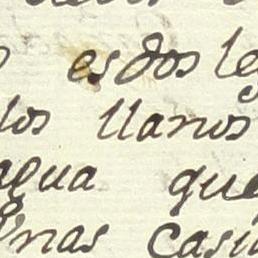 es dos le
los llanos
agua que
Unas casa